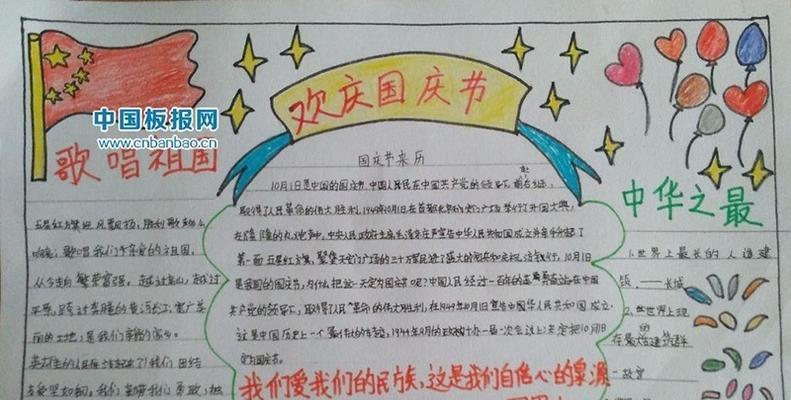 欢庆国庆节
中国板报网
www.cnbanbao.cn
歌唱祖国
五星红旗迎风飘扬,胜利歌声多么
响亮;歌唱我们亲爱的祖国,
从今走向繁荣富强。越过高山,越过
平原,跨过奔腾的黄河长江;宽广美
丽的土地,是我们亲爱的家乡。
英雄的人民站起来了!我们团结
友爱坚如钢。
国庆节来历
10月1日是中国的国庆节,中国人民在中国共产党的领导下,前仆后继,
取得了人民革命的伟大胜利,1949年10月1日在首都北京天安门广场举行了开国大典,
在隆隆的礼炮声中,中央人民政府主席毛泽东庄严宣告中华人民共和国成立并亲手升起了
第一面五星红旗,聚集天安门广场的三十万军民进行了盛大的阅兵和庆祝游行,10月1日
是我国的国庆节,为什么把这一天定为国庆呢?中国人民经过一百年的英勇奋战在中国
共产党的领导下,取得了人民革命的伟大胜利,在1949年10月1日宣告中国华人民共和国成立,
这是中国历史上一个最伟大的转变,1949年
定为国庆节。
我们爱我们的民族,这是我们自信心的泉源
中华之最
1.世界上最长的人造建
筑,——长城
2.世界上现
存最
—故宫